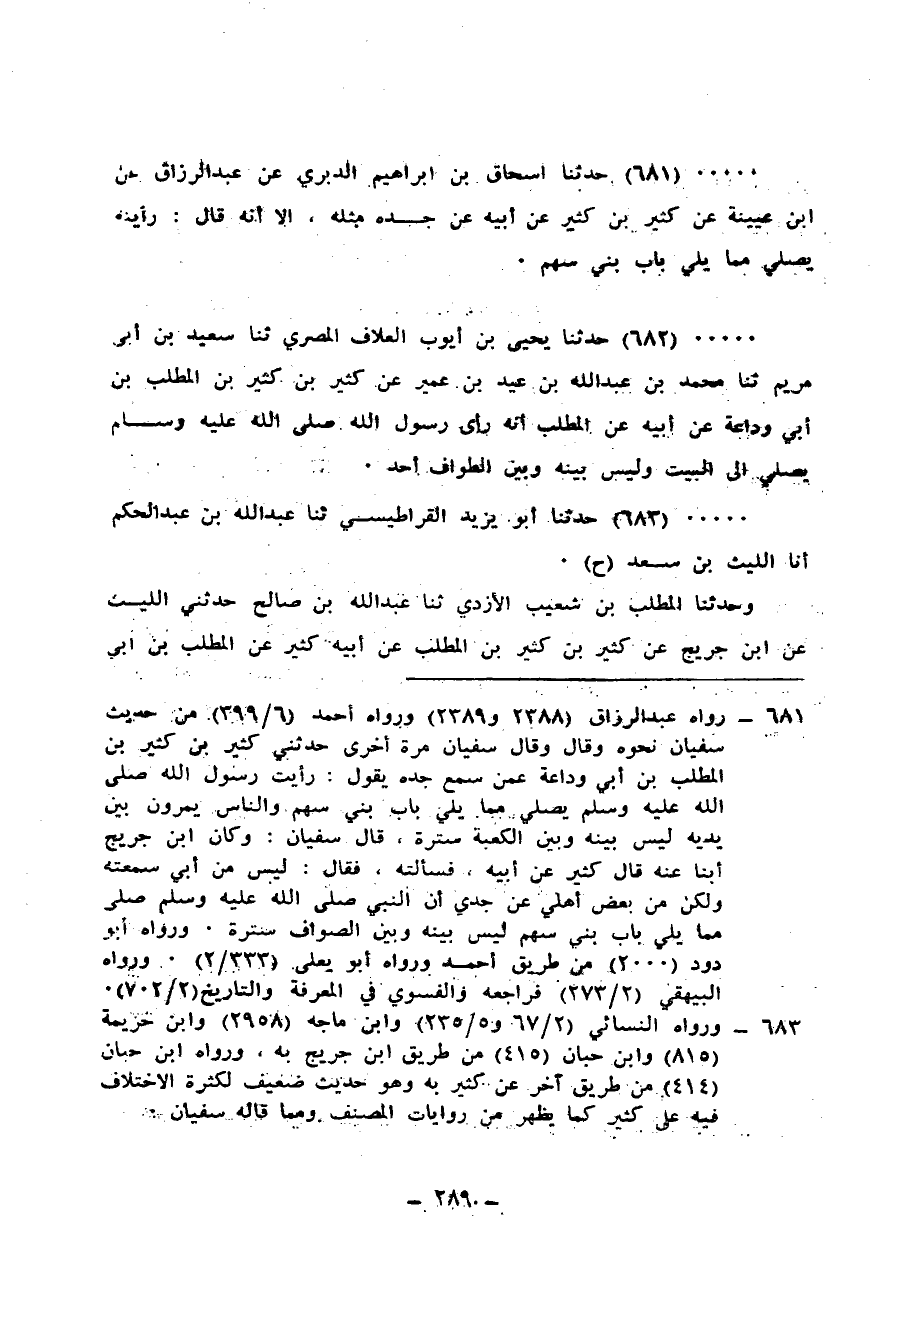 ٠٠٠٠٠ (٦٨١) حدثنا اسحاق بن ابراهيم الدبري عن عبدالرزاق عن
ابن عيينة عن كثير بن كثير عن أبيه عن جـــده مثله ، الا أنه قال : رأيته
يصلي مما يلي باب بني سهم ٠
٠٠٠٠٠ (٦٨٢) حدثنا يحيى بن أيوب العلاف المصري ثنا سعيد بن أبي
مريم ثنا محمد بن عبدالله بن عبيد بن عمير عن كثير بن كثير بن المطلب بن
أبي وداعة عن أبيه عن المطلب أنه رأى رسول الله صلى الله عليه وســـلم
يصلي الى البيت وليس بينه وبين الطواف أحد ٠
٠٠٠٠٠ (٦٨٣) حدثنا أبو يزيد القراطيســي ثنا عبدالله بن عبدالحكم
أنا الليث بن ســعد (ح) ٠
وحدثنا المطلب بن شعيب الأزدي ثنا عبدالله بن صالح حدثني الليــث
عن ابن جريج عن كثير بن كثير بن المطلب عن أبيه كثير عن المطلب بن ابي
٦٨١ – رواه عبدالرزاق (٢٣٨٨ و٢٣٨٩) ورواه أحمد (٣٩٩/٦) من حديث
سفيان نحوه وقال وقال سفيان مرة أخرى حدثني كثير بن كثير بن
المطلب بن أبي وداعة عمن سمع جده يقول : رأيت رسول الله صلى
الله عليه وسلم يصلي مما يلي باب بني سهم والناس يمرون بين
يديه ليس بينه وبين الكعبة سترة ، قال سفيان : وكان ابن جريج
أبنا عنه قال كثير عن أبيه ، فسألته ، فقال : ليس من أبي سمعته
ولكن من بعض أهلي عن جدي أن النبي صلى الله عليه وسلم صلى
مما يلي باب بني سهم ليس بينه وبين الصواف سترة ٠ ورواه أبو
دود (٢٠٠٠) من طريق أحمــد ورواه أبو يعلى (٢/٣٣٣) ٠ ورواه
البيهقي (٢٧٣/٢) فراجعه والفسوي في المعرفة والتاريخ(٧٠٢/٢)٠
٦٨٣ – ورواه النسائي (٦٧/٢ و٢٣٥/٥) وابن ماجه (٢٩٥٨) وابن خزيمة
(٨١٥) وابن حبان (٤١٥) من طريق ابن جريج به ، ورواه ابن حبان
(٤١٤) من طريق آخر عن كثير به وهو حديث ضعيف لكثرة الاختلاف
فيه على كثير كما يظهر من روايات المصنف ومما قاله سفيان ٠
– ٢٨٩٠ –